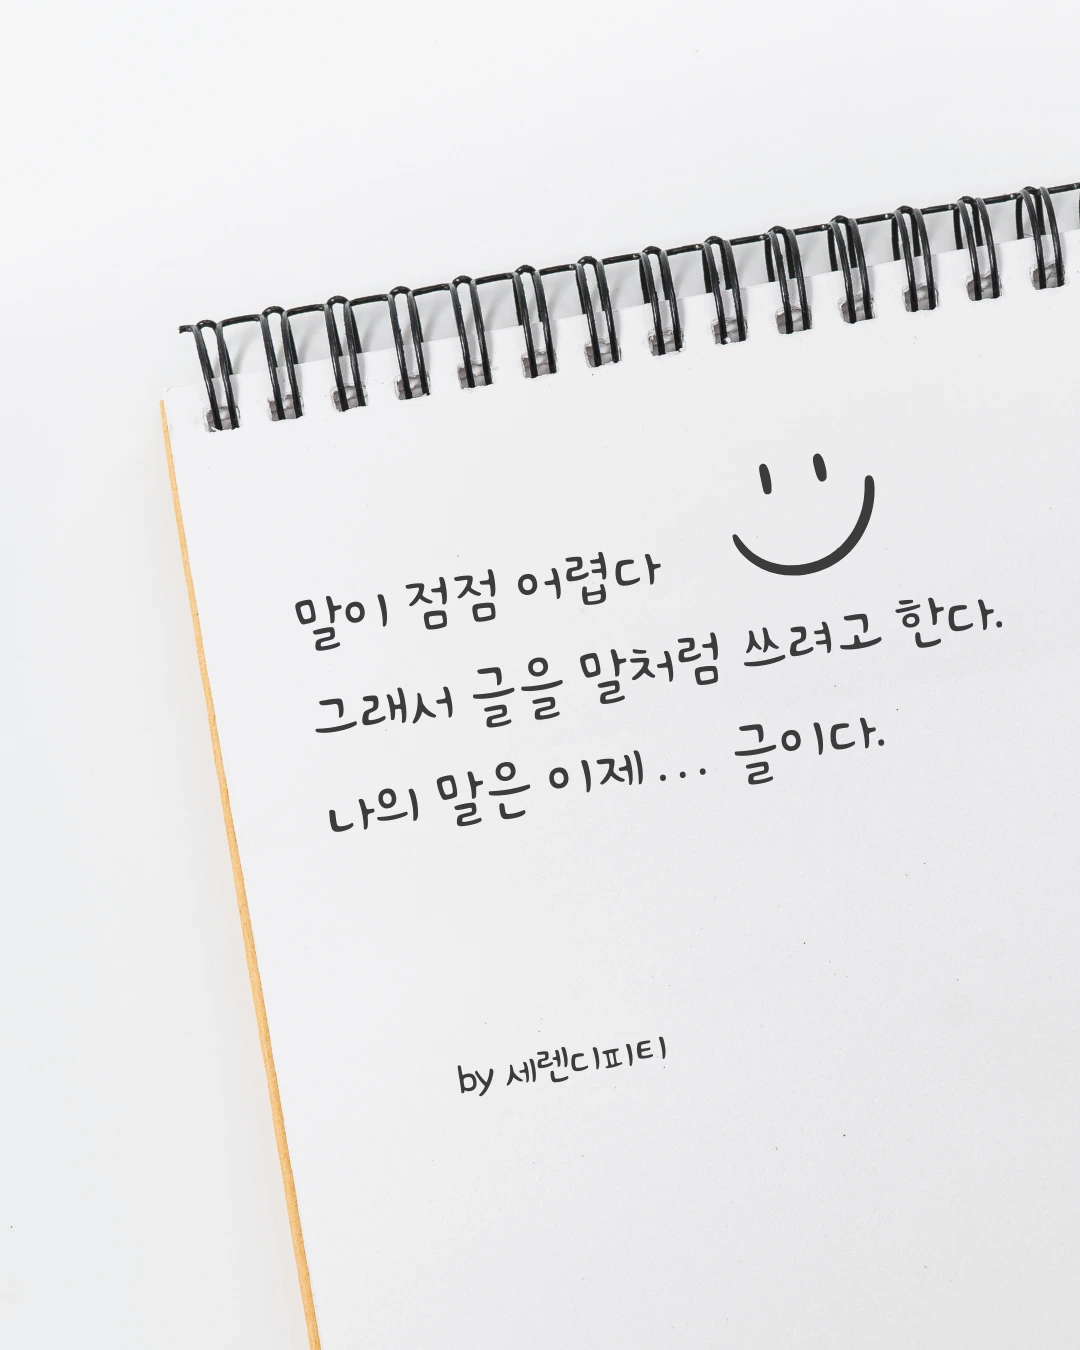 말이 점점 어렵다
그래서 글을 말처럼 쓰려고 한다.
나의 말은 이제... 글이다.
by 세렌디피티